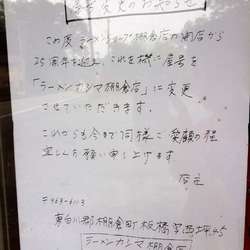 変更のお知らせ
この度ラーメンショップ棚倉店が開店から
25周年を迎え、これを機に屋号を
「ラーメンカシマ棚倉店」に変更
させていただきます。
これからも今まで同様ご愛顧の程
宜しくお願い申し上げます
店主
〒963-6113
東白川郡棚倉町板橋字西上坪45
ラーメンカシマ棚倉店